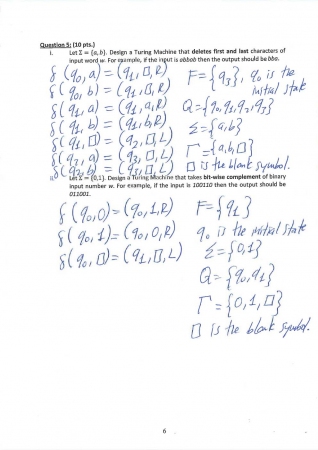 Question 5: [10 pts.]
i. Let Σ = {a, b}. Design a Turing Machine that deletes first and last characters of
input word w. For example, if the input is abbab then the output should be bba.
δ(q₀, a) = (q₁, □, R)
δ(q₀, b) = (q₁, □, R)
δ(q₁, a) = (q₁, a, R)
δ(q₁, b) = (q₁, b, R)
δ(q₁, □) = (q₂, □, L)
δ(q₂, a) = (q₃, □, L)
δ(q₂, b) = (q₃, □, L)
F = {q₃}, q₀ is the
initial state
Q = {q₀, q₁, q₂, q₃}
Σ = {a, b}
Γ = {a, b, □}
□ is the blank symbol.
ii. Let Σ = {0,1}. Design a Turing Machine that takes bit-wise complement of binary
input number w. For example, if the input is 100110 then the output should be
011001.
δ(q₀, 0) = (q₀, 1, R)
δ(q₀, 1) = (q₀, 0, R)
δ(q₀, □) = (q₁, □, L)
F = {q₁}
q₀ is the initial state
Σ = {0, 1}
Q = {q₀, q₁}
Γ = {0, 1, □}
□ is the blank symbol.
6